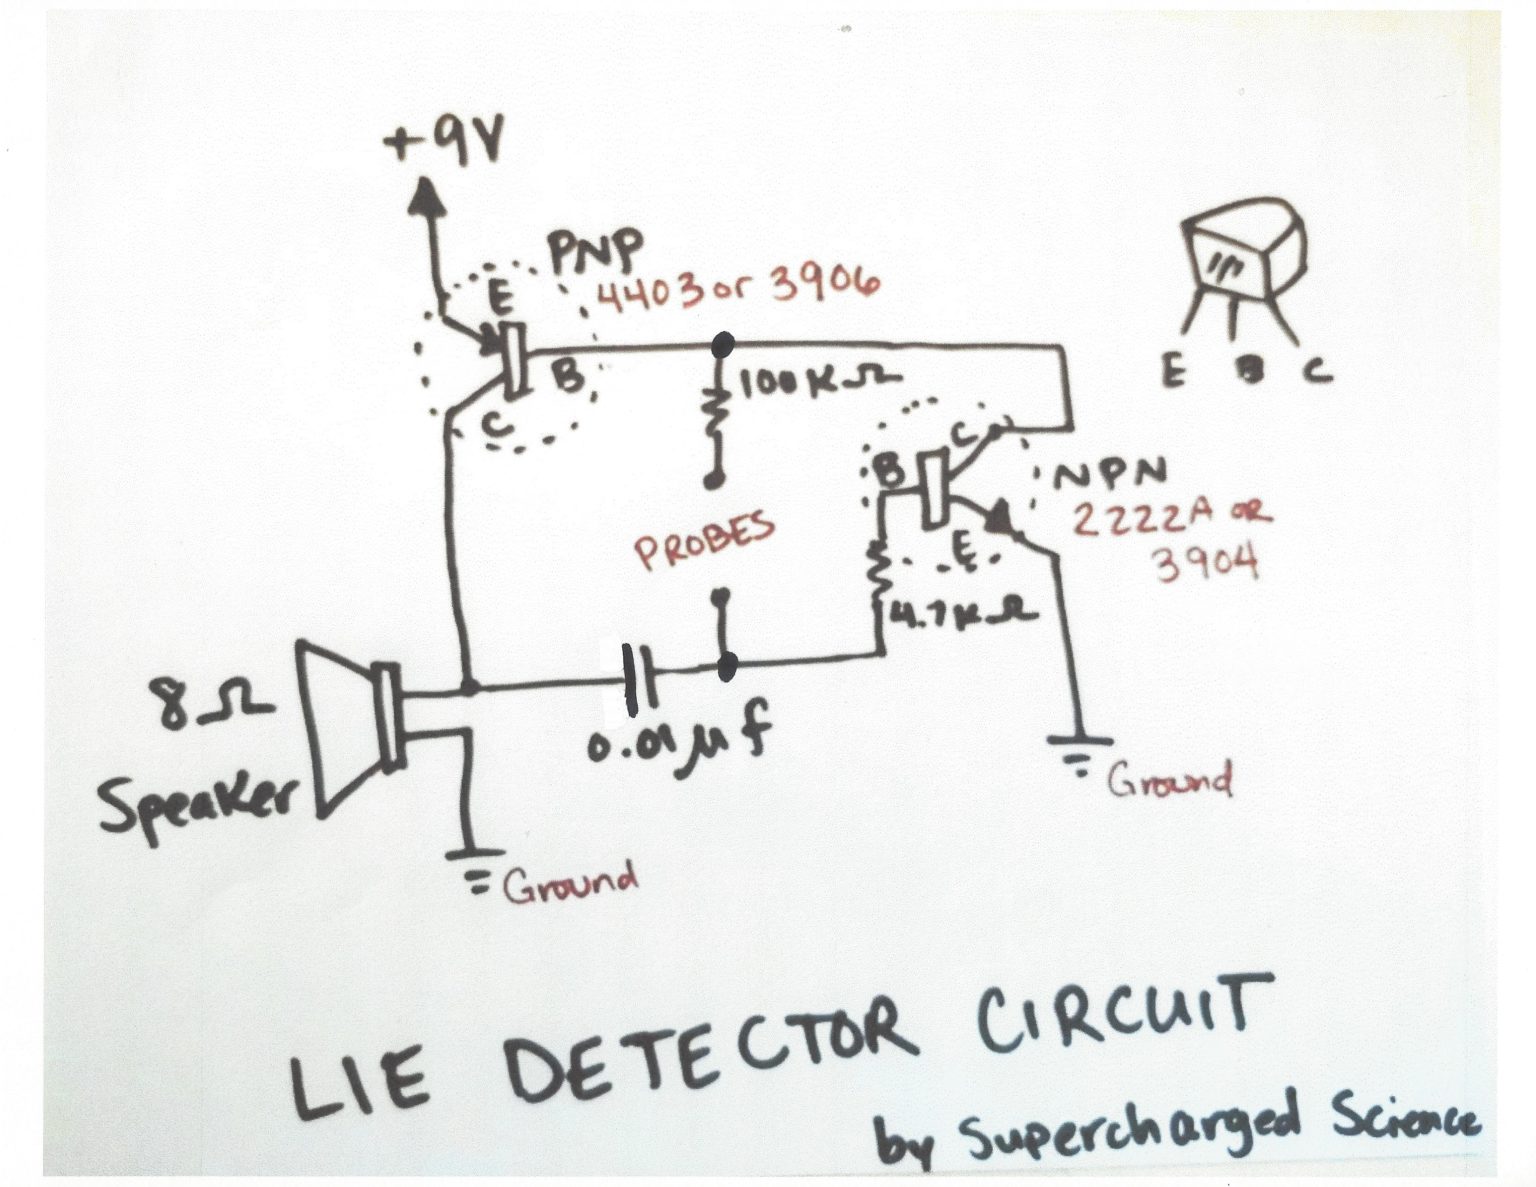 +9V
PNP
4403 or 3906
E
B
C
100KΩ
E B C
C
B
E
NPN
2222A OR
3904
PROBES
4.7KΩ
8Ω
Speaker
0.01µf
Ground
Ground
LIE DETECTOR CIRCUIT
by Supercharged Science